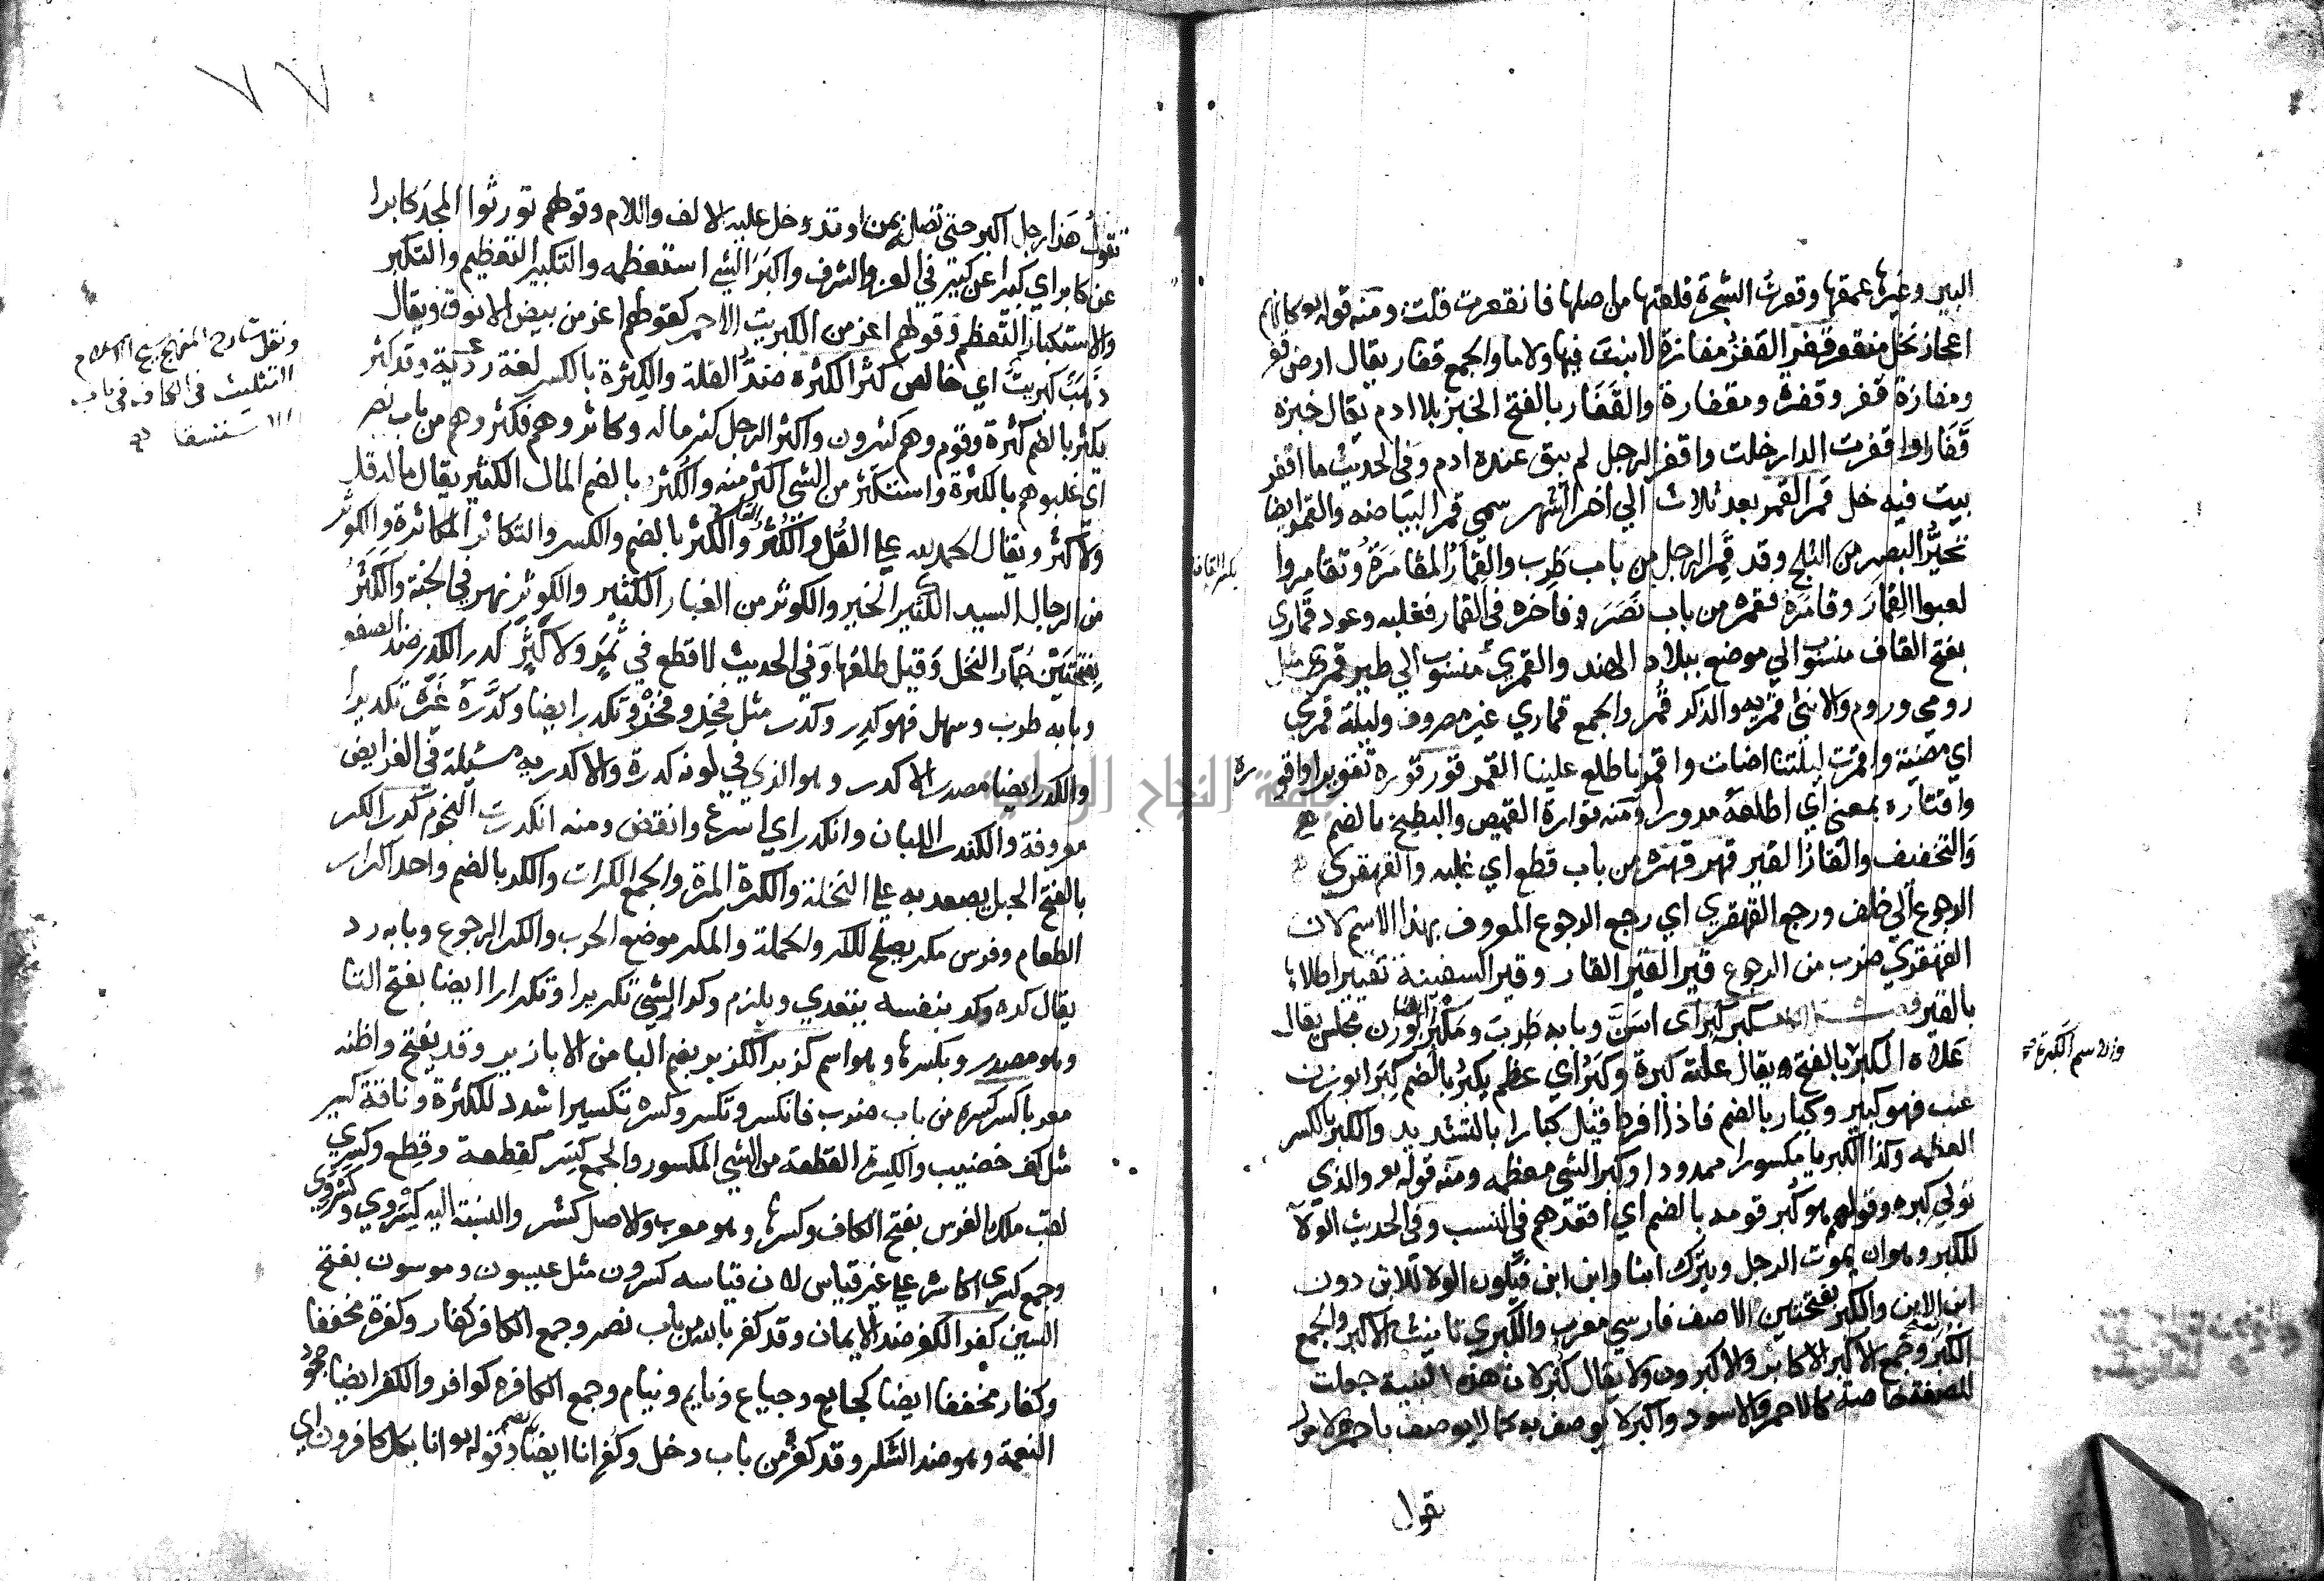 البير وغيرها عمقها وقعرت الشجرة قلعتها من اصلها فانقعرت قلت ومنه قوله تع كانهم
اعجاز نخل منقعر قفر القفر مفازة لا نبت فيها ولا ما والجمع قفار يقال ارض قفر
ومفازة قفر وقفرة ومقفارة والقفار بالفتح الخبز بلا ادم يقال خبزه
قفارا واقفرت الدار خلت واقفر الرجل لم يبق عنده ادم وفي الحديث ما اقفر
بيت فيه خل قمر القمر بعد ثلاث الي اخر الشهر سمي قمر البياضه والقمر ايضا
تحيُّر البصر من الثلج وقد قمر الرجل من باب طَرِب والقِمَارُ المقامَرَة وتقامروا
بكسر القاف
لعبوا القِمَارَ وقامَرَهُ فقمره من باب نَصَرَ وفاخره في القمار فغلبه وعود قَمَاري
بفتح القاف منسوب الي موضع ببلاد الهند والقمري منسوب الي طير قمري مثل
رومي وروم والانثى قمريه والذكر قمر والجمع قماري غير مصروف وليلة قمري
اي مضيّة واقمرت ليلتنا اضات واقمرنا طلع علينا القمر قور قوره تقويرا واقوره
واقتاره بمعني اي اطلعه مدورا ومنه قوارة القميص والبطيخ بالضم
والتخفيف والقار القير قهر قهره من باب قطع اي غلبه والقهقري
الرجوع الي خلف ورجع القهقري اي رجع الرجوع المعروف بهذا الاسم لان
القهقري ضرب من الرجوع قير القير القار وقير السفينة تقييرا طلاها
بالقير كبر كبر اي اسَنَّ وبابه طَرِبَ ومكبر ايضا بوزن مجلس يقال
علاه المكبر والاسم الكَبرة بالفتح ويقال علته كبرة وكَبُرَ اي عظم يكبُر بالضم كِبَرا بوزن
عنب فهو كبير وكبار بالضم فاذا افرط قيل كبارا بالتشديد والكبر بالكسر
العظمه وكذا الكبريا مكسورا ممدودا وكبر الشي معظمه ومنه قوله تع والذي
تولي كبره وقولهم هو كُبر قومه بالضم اي اقعدهم في النسب وفي الحديث الولا
للكبر وهو ان يموت الرجل ويترك ابنا وابن ابن فيكون الولا للابن دون
ابن الابن والكبر بفتحتين الاصف فارسي معرب والكبري تانيث الاكبر والجمع
الكبر وجمع الاكبر الاكابر والاكبرون ولا يقال كبر لان هذه البنية جعلت
للصفة خاصة كالاحمر والاسود واكبر لا يوصف به كما لا يوصف باحمر لا
تقول
٧٧
تقول هذا رجل اكبر حتي تصله بمن او تدخل عليه الالف واللام وقولهم تورثوا المجد كابرا
عن كابر اي كبرا عن كبير في العز والشرف واكبَرَ الشي استعظمه والتكبير التعظيم والتكبر
والاستكبار التعظم وقولهم اعز من الكبريت الاحمر كقولهم اعز من بيض الانوق ويقال
ذهب كبريت اي خالص كثر الكثره ضد القلة والكِثرة بالكسر لغة ردية وقد كثر
ونقل شارح المنهج
التثليث في الكاف في باب
الاستسقا
يكثر بالضم كثرة وقوم وهم كثيرون واكثر الرجل كثر ماله وكاثروهم فكثروهم من باب نصر
اي غلبوهم بالكثرة واستكثر من الشي اكثر منه والكُثر بالضم المال الكثير يقال ماله قل
ولا كُثر ويقال الحمد لله علي القُل والكُثر والقِل والكِثر بالضم والكسر والتكاثر المكاثرة والكوثر
من الرجال السيد الكثير الخير والكوثر من الغبار الكثير والكوثر نهر في الجنة والكَثَرُ
بفتحتين جُمّار النخل وقيل طلعُها وفي الحديث لا قطع في ثمر ولا كَثَرٍ كدر الكدر ضد الصفو
وبابه طرب وسهل فهو كدِر وكدْر مثل فخِذ وفخْذ وتكدر ايضا وكدَّره غيره تكديرا
والكدر ايضا مصدر الاكدر وهو الذي في لونه كدرة والاكدريه مسئلة في الفرايض
معروفة والكندر اللبان وانكدر اي اسرع وانقض ومنه انكدرت النجوم كرر الكر
بالفتح الحبل يصعد به علي النخلة والكرة المرة والجمع الكرات والكر بالضم واحد اكرار
الطعام وفرس مكر يصلح للكر والحملة والمكر موضع الحرب والكر الرجوع وبابه رد
يقال كره وكر بنفسه يتعدي ويلزم وكرر الشي تكريرا وتكرارا ايضا بفتح التا
وهو مصدر وبكسرها وهو اسم كزبر الكزبر بضم البا من الابازير وقد يفتح واظنه
معربا كسر كسره من باب ضرب فانكسر وتكسر وكسره تكسيرا شدد للكثرة وناقة كسير
مثل كف خضيب والكِسرة القطعة من الشي المكسور والجمع كِسَر كقطعة وقطع وكسري
لقب ملك الفرس بفتح الكاف وكسرها وهو معرب والاصل كشر والنسبة اليه كسروي وكسروي
وجمع كسري اكاسر علي غير قياس لان قياسه كسرون مثل عيسون وموسون بفتح
السين كفر الكفر ضد الايمان وقد كفر بالله من باب نصر وجمع الكافر كفار وكفرة مخففا
وكفار مخففا ايضا كجايع وجياع ونايم ونيام وجمع الكافره كوافر والكفر ايضا جحود
النعمة وهو ضد الشكر وقد كفر من باب دخل وكفرانا ايضا بالضم وقوله تع انا بكل كافرون اي